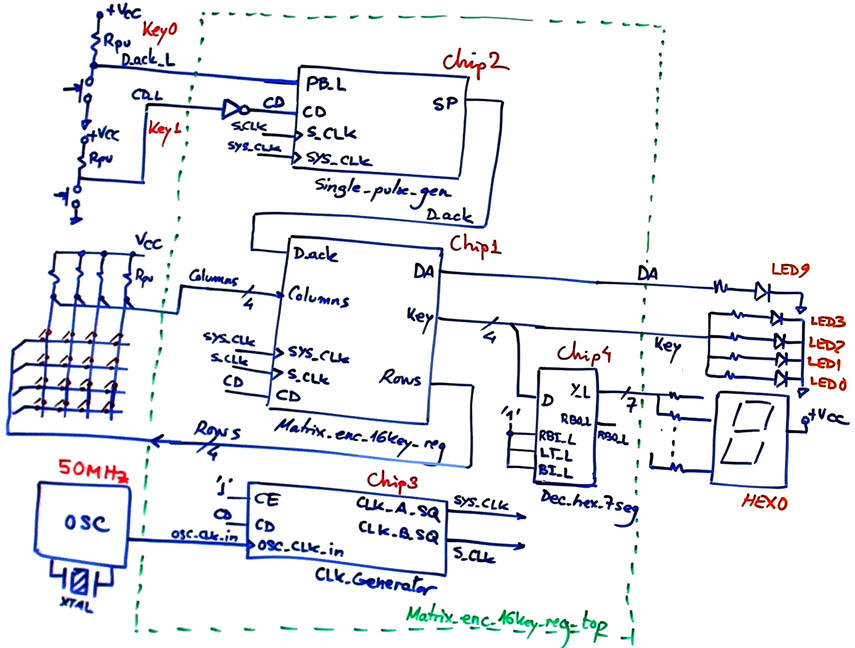 +Vcc
Key0
Rpu
D_ack_L
Chip2
PB_L
SP
CD_L
CD
CD
S_CLK
S_CLK
SYS_CLK
SYS_CLK
Key1
+Vcc
Rpu
Single_pulse_gen
D_ack
Chip1
D_ack
DA
DA
LED9
Vcc
Rpu
Columns
4
Columns
Key
4
Key
LED3
LED2
LED1
LED0
SYS_CLK
SYS_CLK
S_CLK
S_CLK
CD
CD
Rows
Rows
4
Matrix_enc_16key_reg
Chip4
D
Y_L
7
'1'
RBO_L
RBO_L
RBI_L
LT_L
BI_L
Dec_hex_7seg
+Vcc
HEX0
50MHz
OSC
XTAL
OSC_CLK_in
Chip3
'1'
CE
CLK_A_SQ
SYS_CLK
CD
CD
CLK_B_SQ
OSC_CLK_in
S_CLK
CLK_Generator
Matrix_enc_16key_reg_top